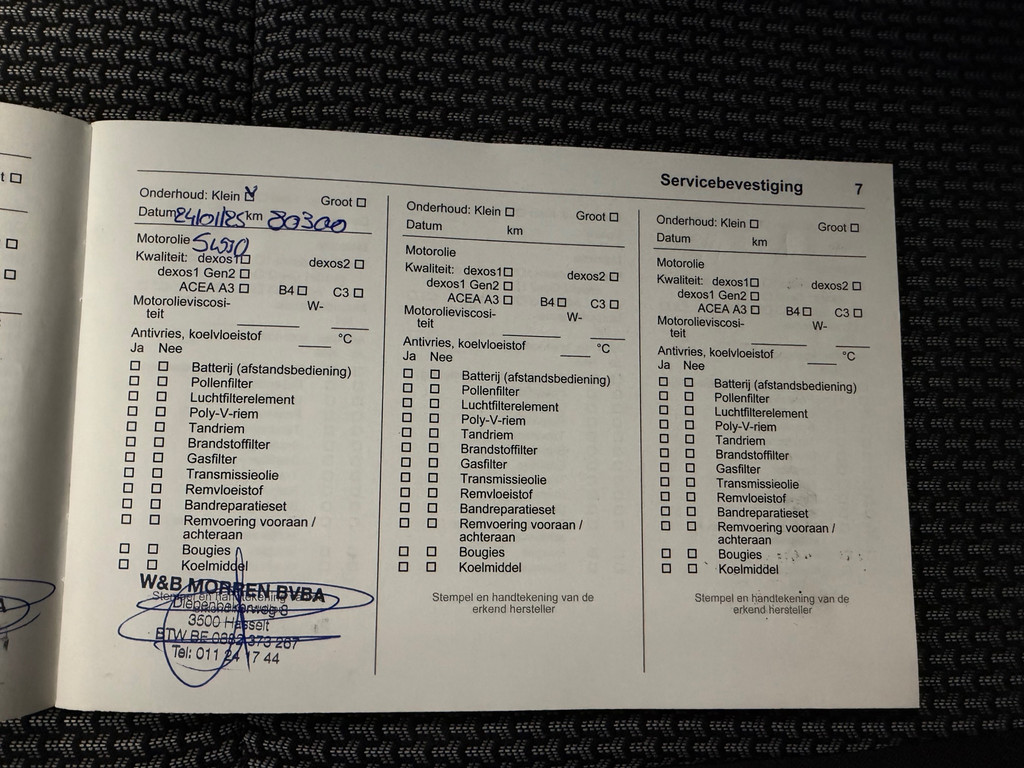 Servicebevestiging 7
Onderhoud: Klein Groot
Datum 24/01/25 km 80300
Motorolie 5W30
Kwaliteit: dexos1 dexos2
dexos1 Gen2
ACEA A3 B4 C3
Motorolieviscosi-
teit W-
Antivries, koelvloeistof °C
Ja Nee
Batterij (afstandsbediening)
Pollenfilter
Luchtfilterelement
Poly-V-riem
Tandriem
Brandstoffilter
Gasfilter
Transmissieolie
Remvloeistof
Bandreparatieset
Remvoering vooraan /
achteraan
Bougies
Koelmiddel
W&B MORREN BVBA
Stempel en handtekening van de
Diepenbekerweg 8
3500 Hasselt
BTW BE 373 267
Tel: 011 24 17 44
Onderhoud: Klein Groot
Datum km
Motorolie
Kwaliteit: dexos1 dexos2
dexos1 Gen2
ACEA A3 B4 C3
Motorolieviscosi-
teit W-
Antivries, koelvloeistof °C
Ja Nee
Batterij (afstandsbediening)
Pollenfilter
Luchtfilterelement
Poly-V-riem
Tandriem
Brandstoffilter
Gasfilter
Transmissieolie
Remvloeistof
Bandreparatieset
Remvoering vooraan /
achteraan
Bougies
Koelmiddel
Stempel en handtekening van de
erkend hersteller
Onderhoud: Klein Groot
Datum km
Motorolie
Kwaliteit: dexos1 dexos2
dexos1 Gen2
ACEA A3 B4 C3
Motorolieviscosi-
teit W-
Antivries, koelvloeistof °C
Ja Nee
Batterij (afstandsbediening)
Pollenfilter
Luchtfilterelement
Poly-V-riem
Tandriem
Brandstoffilter
Gasfilter
Transmissieolie
Remvloeistof
Bandreparatieset
Remvoering vooraan /
achteraan
Bougies
Koelmiddel
Stempel en handtekening van de
erkend hersteller